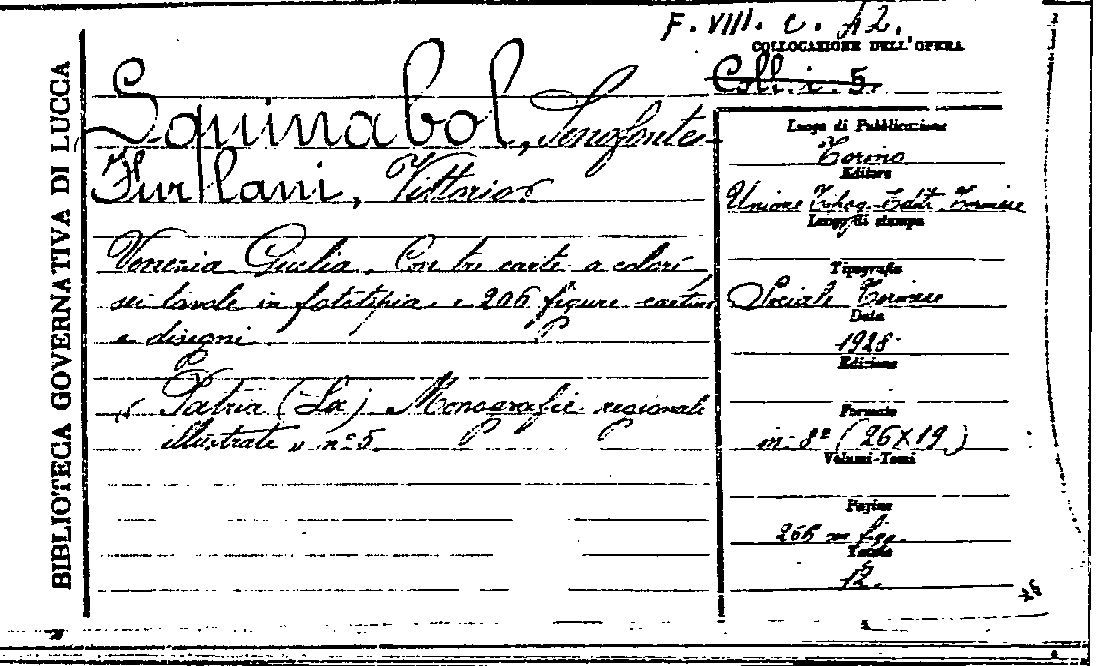 F. VIII. c. 12.
COLLOCAZIONE DELL'OPERA
Coll. i. 5.
BIBLIOTECA GOVERNATIVA DI LUCCA
Squinabol, Senofonte -
Furlani, Vittorio
Venezia Giulia. Con tre carte a colori
sei tavole in fototipia e 206 figure cartine
e disegni.
« Patria (La) Monografie regionali
illustrate » n° 5.
Luogo di Pubblicazione
Torino
Editore
Unione Tipog. Edit. Torinese
Luogo di stampa
Tipografia
Sociale Torinese
Data
1928
Edizione
Formato
in-8° (26x19)
Volumi-Tomi
Pagine
266 m fig.
Tavole
12.